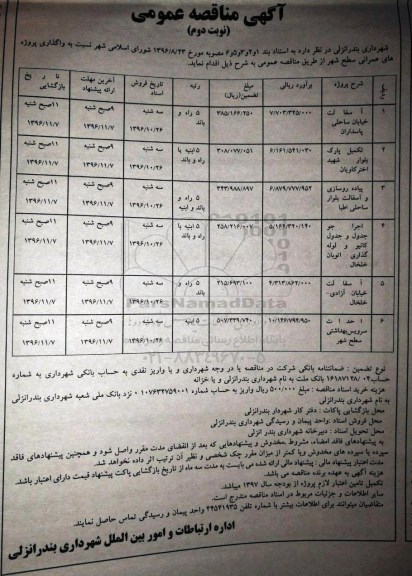 آگهی مناقصه عمومی
(نوبت دوم)
شهرداری بندرانزلی در نظر دارد به استناد بند ۱و۲و۳و۵و۶ مصوبه مورخ ۱۳۹۶/۸/۲۳ شورای اسلامی شهر نسبت به واگذاری پروژه
های عمرانی سطح شهر از طریق مناقصه عمومی به شرح ذیل اقدام نماید.
ردیف شرح پروژه برآورد ریالی مبلغ تضمین(ریال) رتبه تاریخ فروش اسناد آخرین مهلت ارائه پیشنهاد تاریخ بازگشایی
۱ آسفالت خیابان ساحلی پاسداران ۷/۷۰۳/۳۴۵/۰۰۰ ۳۸۵/۱۶۶/۲۵۰ ۵ راه و باند سه شنبه ۱۳۹۶/۱۰/۲۶ ۹صبح شنبه ۱۳۹۶/۱۱/۷ ۱۱صبح شنبه ۱۳۹۶/۱۱/۷
۲ تکمیل پارک بلوار شهید اخترکاویان ۶/۱۶۱/۵۴۱/۰۳۰ ۳۰۸/۰۷۷/۰۵۱ ۵ابنیه یا راه و باند سه شنبه ۱۳۹۶/۱۰/۲۶ ۹صبح شنبه ۱۳۹۶/۱۱/۷ ۱۱صبح شنبه ۱۳۹۶/۱۱/۷
۳ پیاده روسازی و آسفالت بلوار ساحلی اطبا ۶/۸۷۹/۷۷۷/۹۵۲ ۳۴۳/۹۸۸/۸۹۷ ۵ راه و باند و ابنیه سه شنبه ۱۳۹۶/۱۰/۲۶ ۹صبح شنبه ۱۳۹۶/۱۱/۷ ۱۱صبح شنبه ۱۳۹۶/۱۱/۷
۴ اجرا جو جدول و جدول کانیو و لوله گذاری اتوبان خلخال ۵/۱۶۴/۳۲۰/۱۴۰ ۲۵۸/۲۱۶/۰۰۷ ۵ابنیه یا راه و باند سه شنبه ۱۳۹۶/۱۰/۲۶ ۹صبح شنبه ۱۳۹۶/۱۱/۷ ۱۱صبح شنبه ۱۳۹۶/۱۱/۷
۵ آسفالت خیابان آزادی- خلخال ۴/۳۱۳/۸۶۲/۰۰۰ ۲۱۵/۶۹۳/۱۰۰ ۵ راه و باند سه شنبه ۱۳۹۶/۱۰/۲۶ ۹صبح شنبه ۱۳۹۶/۱۱/۷ ۱۱صبح شنبه ۱۳۹۶/۱۱/۷
۶ احداث سرویس‌بهداشتی سطح شهر ۱۰/۱۴۶/۷۹۴/۹۵۰ ۵۰۷/۳۳۹/۷۴۰ ۵ ابنیه سه شنبه ۱۳۹۶/۱۰/۲۶ ۹صبح شنبه ۱۳۹۶/۱۱/۷ ۱۱صبح شنبه ۱۳۹۶/۱۱/۷
ParsNamadData
۰۲۱-۸۸۳۴۹۶۷۰-۵
نوع تضمین : ضمانتنامه بانکی شرکت در مناقصه یا در وجه شهرداری و یا واریز نقدی به حساب بانکی شهرداری به شماره
حساب ۱۶۱۸۷۱۲۸/۰۲ بانک ملت به نام شهرداری بندرانزلی و یا خزانه
هزینه خرید اسناد مناقصه : مبلغ ۵۰۰/۰۰۰ ریال واریز به حساب شماره ۰۱۰۷۶۳۴۷۵۹۰۰۱ نزد بانک ملی شعبه شهرداری بندرانزلی
به نام شهرداری بندرانزلی
محل بازگشایی پاکات : دفتر کار شهردار بندرانزلی
محل فروش اسناد :واحد پیمان و رسیدگی شهرداری بندرانزلی
محل تحویل اسناد : دبیرخانه شهرداری بندر انزلی
به پیشنهادهای فاقد امضاء، مشروط ,مخدوش و پیشنهادهایی که بعد از انقضای مدت مقرر واصل شود و همچنین پیشنهادهای فاقد
سپرده یا سپرده های مخدوش ویا کمتر از میزان مقرر چک شخصی و نظیر آن ترتیب اثر داده نخواهد شد.
مدت اعتبار پیشنهاد مالی : پیشنهاد مالی ارائه شده می بایست به مدت سه ماه از تاریخ بازگشایی پاکت پیشنهاد قیمت دارای اعتبار باشد.
هزینه آگهی به عهده برنده مناقصه می باشد.
تکمیل تامین اعتبار لازم پروژه از بودجه سال ۱۳۹۷ میباشد.
سایر اطلاعات و جزئیات مربوط در اسناد مناقصه مندرج است.
متقاضیان میتوانند برای اطلاعات بیشتر با شماره تلفن ۴۴۵۴۱۹۳۵ واحد پیمان و رسیدگی تماس حاصل نمایند.
اداره ارتباطات و امور بین الملل شهرداری بندرانزلی